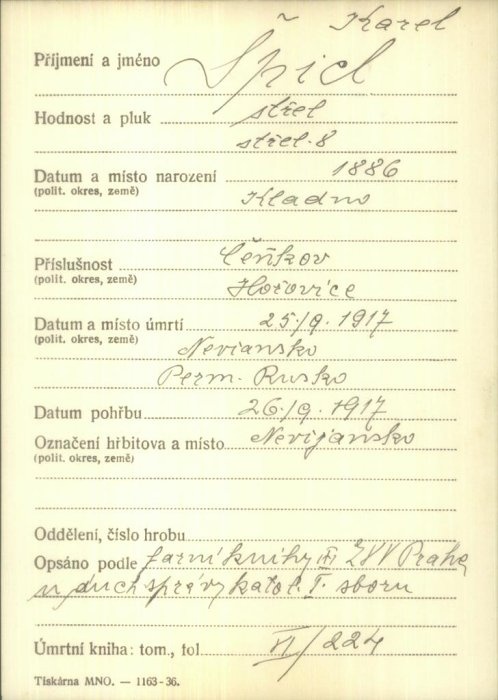 Karel
Příjmení a jméno Špicl
Hodnost a pluk střel
střel. 8
Datum a místo narození 1886
(polit. okres, země) Kladno
Příslušnost Čeňkov
(polit. okres, země) Hořovice
Datum a místo úmrtí 25./9. 1917
(polit. okres, země) Neviansko
Perm. Rusko
Datum pohřbu 26./9. 1917
Označení hřbitova a místo Nevijansko
(polit. okres, země)
Oddělení, číslo hrobu
Opsáno podle farní knihy Praha
duch správy katol. I. sboru
Úmrtní kniha: tom., fol. VI/224
Tiskárna MNO. — 1163-36.